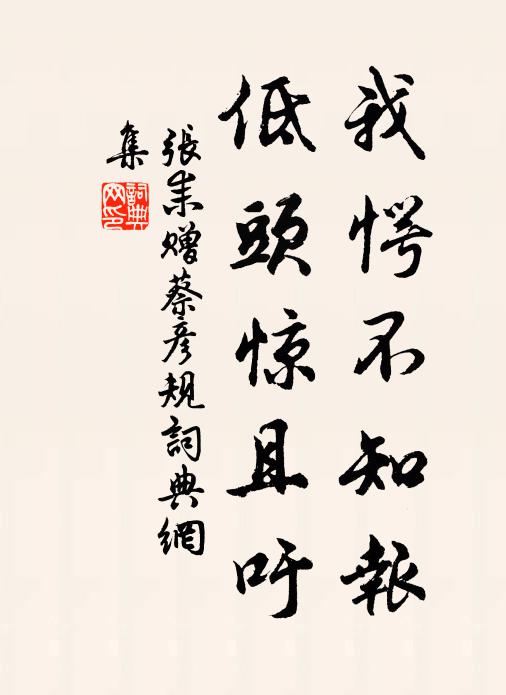 我愕不知報
低頭惊且吁
張耒贈蔡彦規詞典網
集
詞典
网印